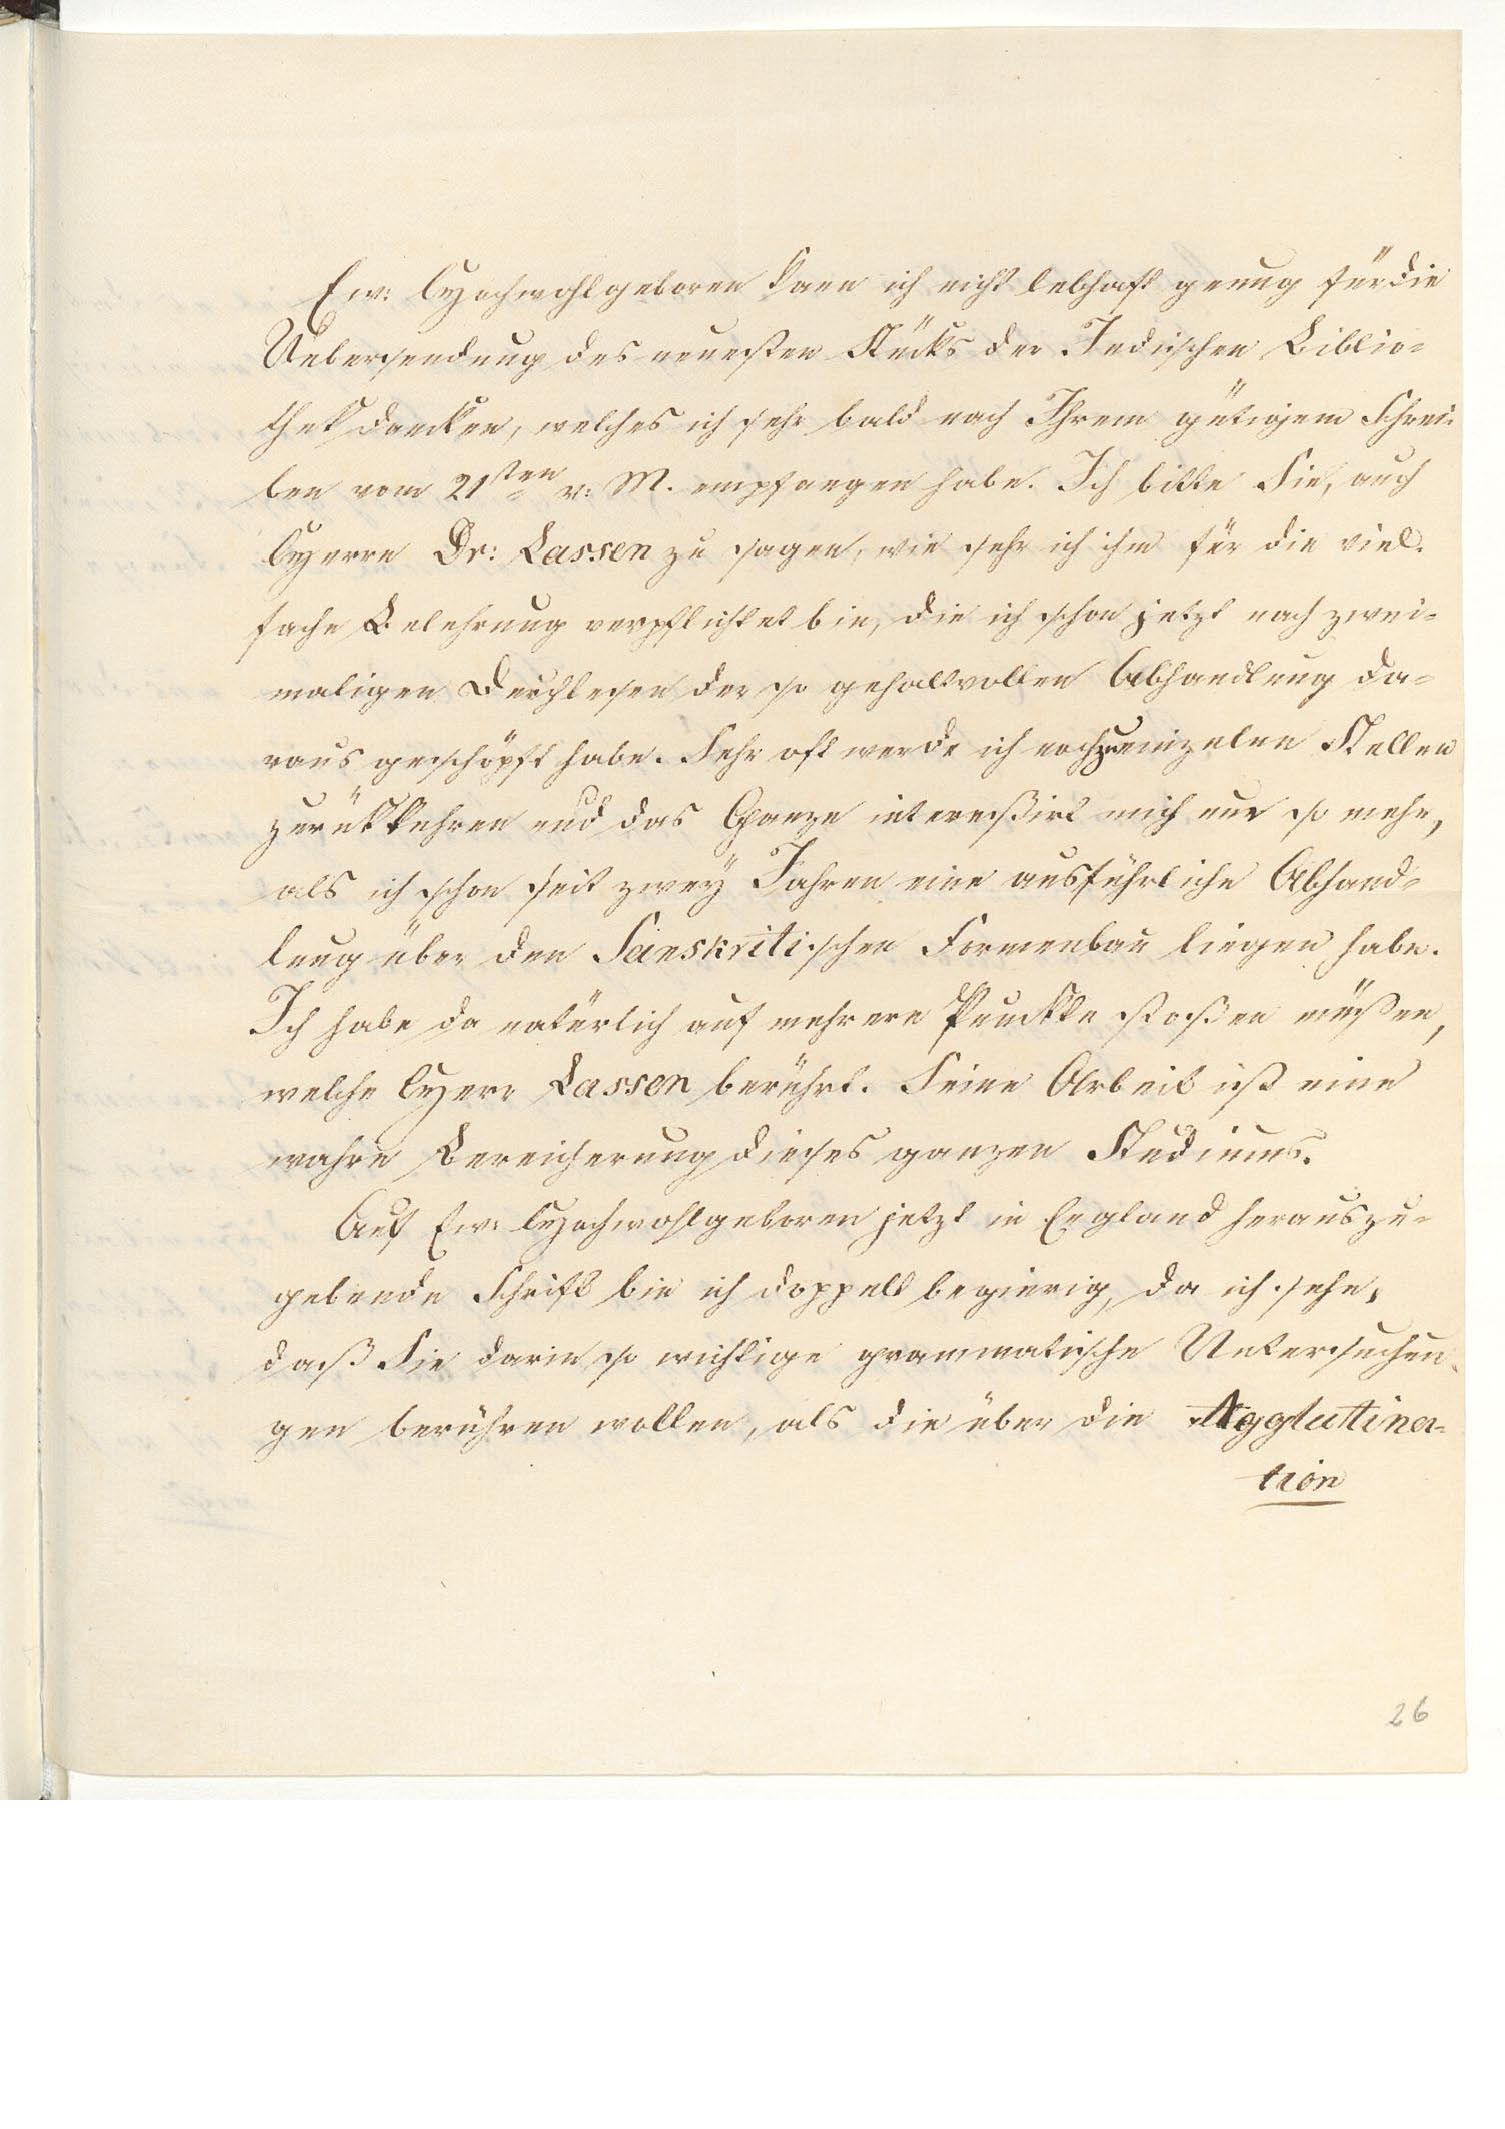 Ew: Hochwohlgeboren kann ich nicht lebhaft genug für die
Uebersendung des neuesten Stücks der Indischen Biblio-
thek danken, welches ich sehr bald nach Ihrem gütigem Schrei-
ben vom 21sten v: M. empfangen habe. Ich bitte Sie, auch
Herrn Dr: Lassen zu sagen, wie sehr ich ihm für die viel-
fache Belehrung verpflichtet bin, die ich schon jetzt nach zwei-
maligen Durchlesen der so gehaltvollen Abhandlung da-
raus geschöpft habe. Sehr oft werde ich noch zu einzelnen Stellen
zurükkehren und das Ganze interessirt mich um so mehr,
als ich schon seit zwey Jahren eine ausführliche Abhand-
lung über den Sanskritischen Formenbau liegen habe.
Ich habe da natürlich auf mehrere Punckte stoßen müßen,
welche Herr Lassen berührt. Seine Arbeit ist eine
wahre Bereicherung dieses ganzen Studiums.
Auf Ew: Hochwohlgeboren jetzt in England herauszu-
gebende Schrift bin ich doppelt begierig, da ich sehe,
daß Sie darin so wichtige grammatische Untersuchun-
gen berühren wollen, als die über die Agglutina-
tion
26